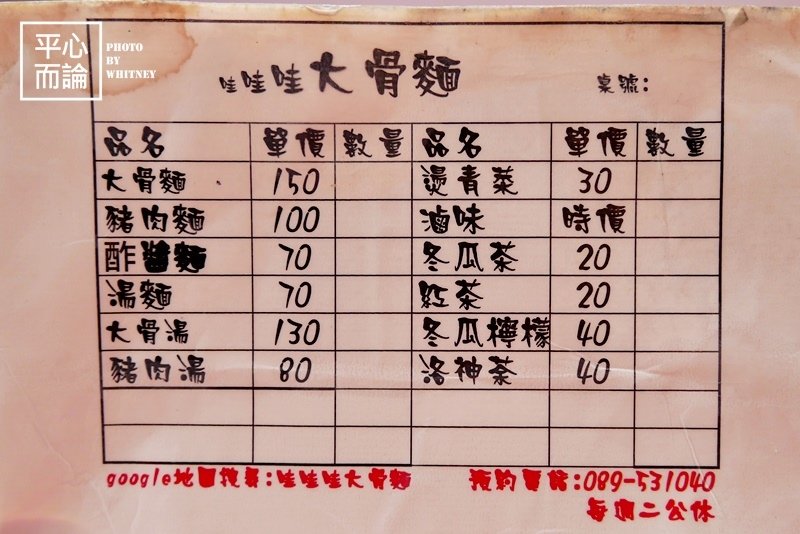 平心
而論
PHOTO
BY
WHITNEY
哇哇哇大骨麵 桌號:
品名 單價 數量 品名 單價 數量
大骨麵 150 燙青菜 30
豬肉麵 100 滷味 時價
酢醬麵 70 冬瓜茶 20
湯麵 70 紅茶 20
大骨湯 130 冬瓜檸檬 40
豬肉湯 80 洛神茶 40
google地圖搜尋:哇哇哇大骨麵 預約電話:089-531040
每週二公休